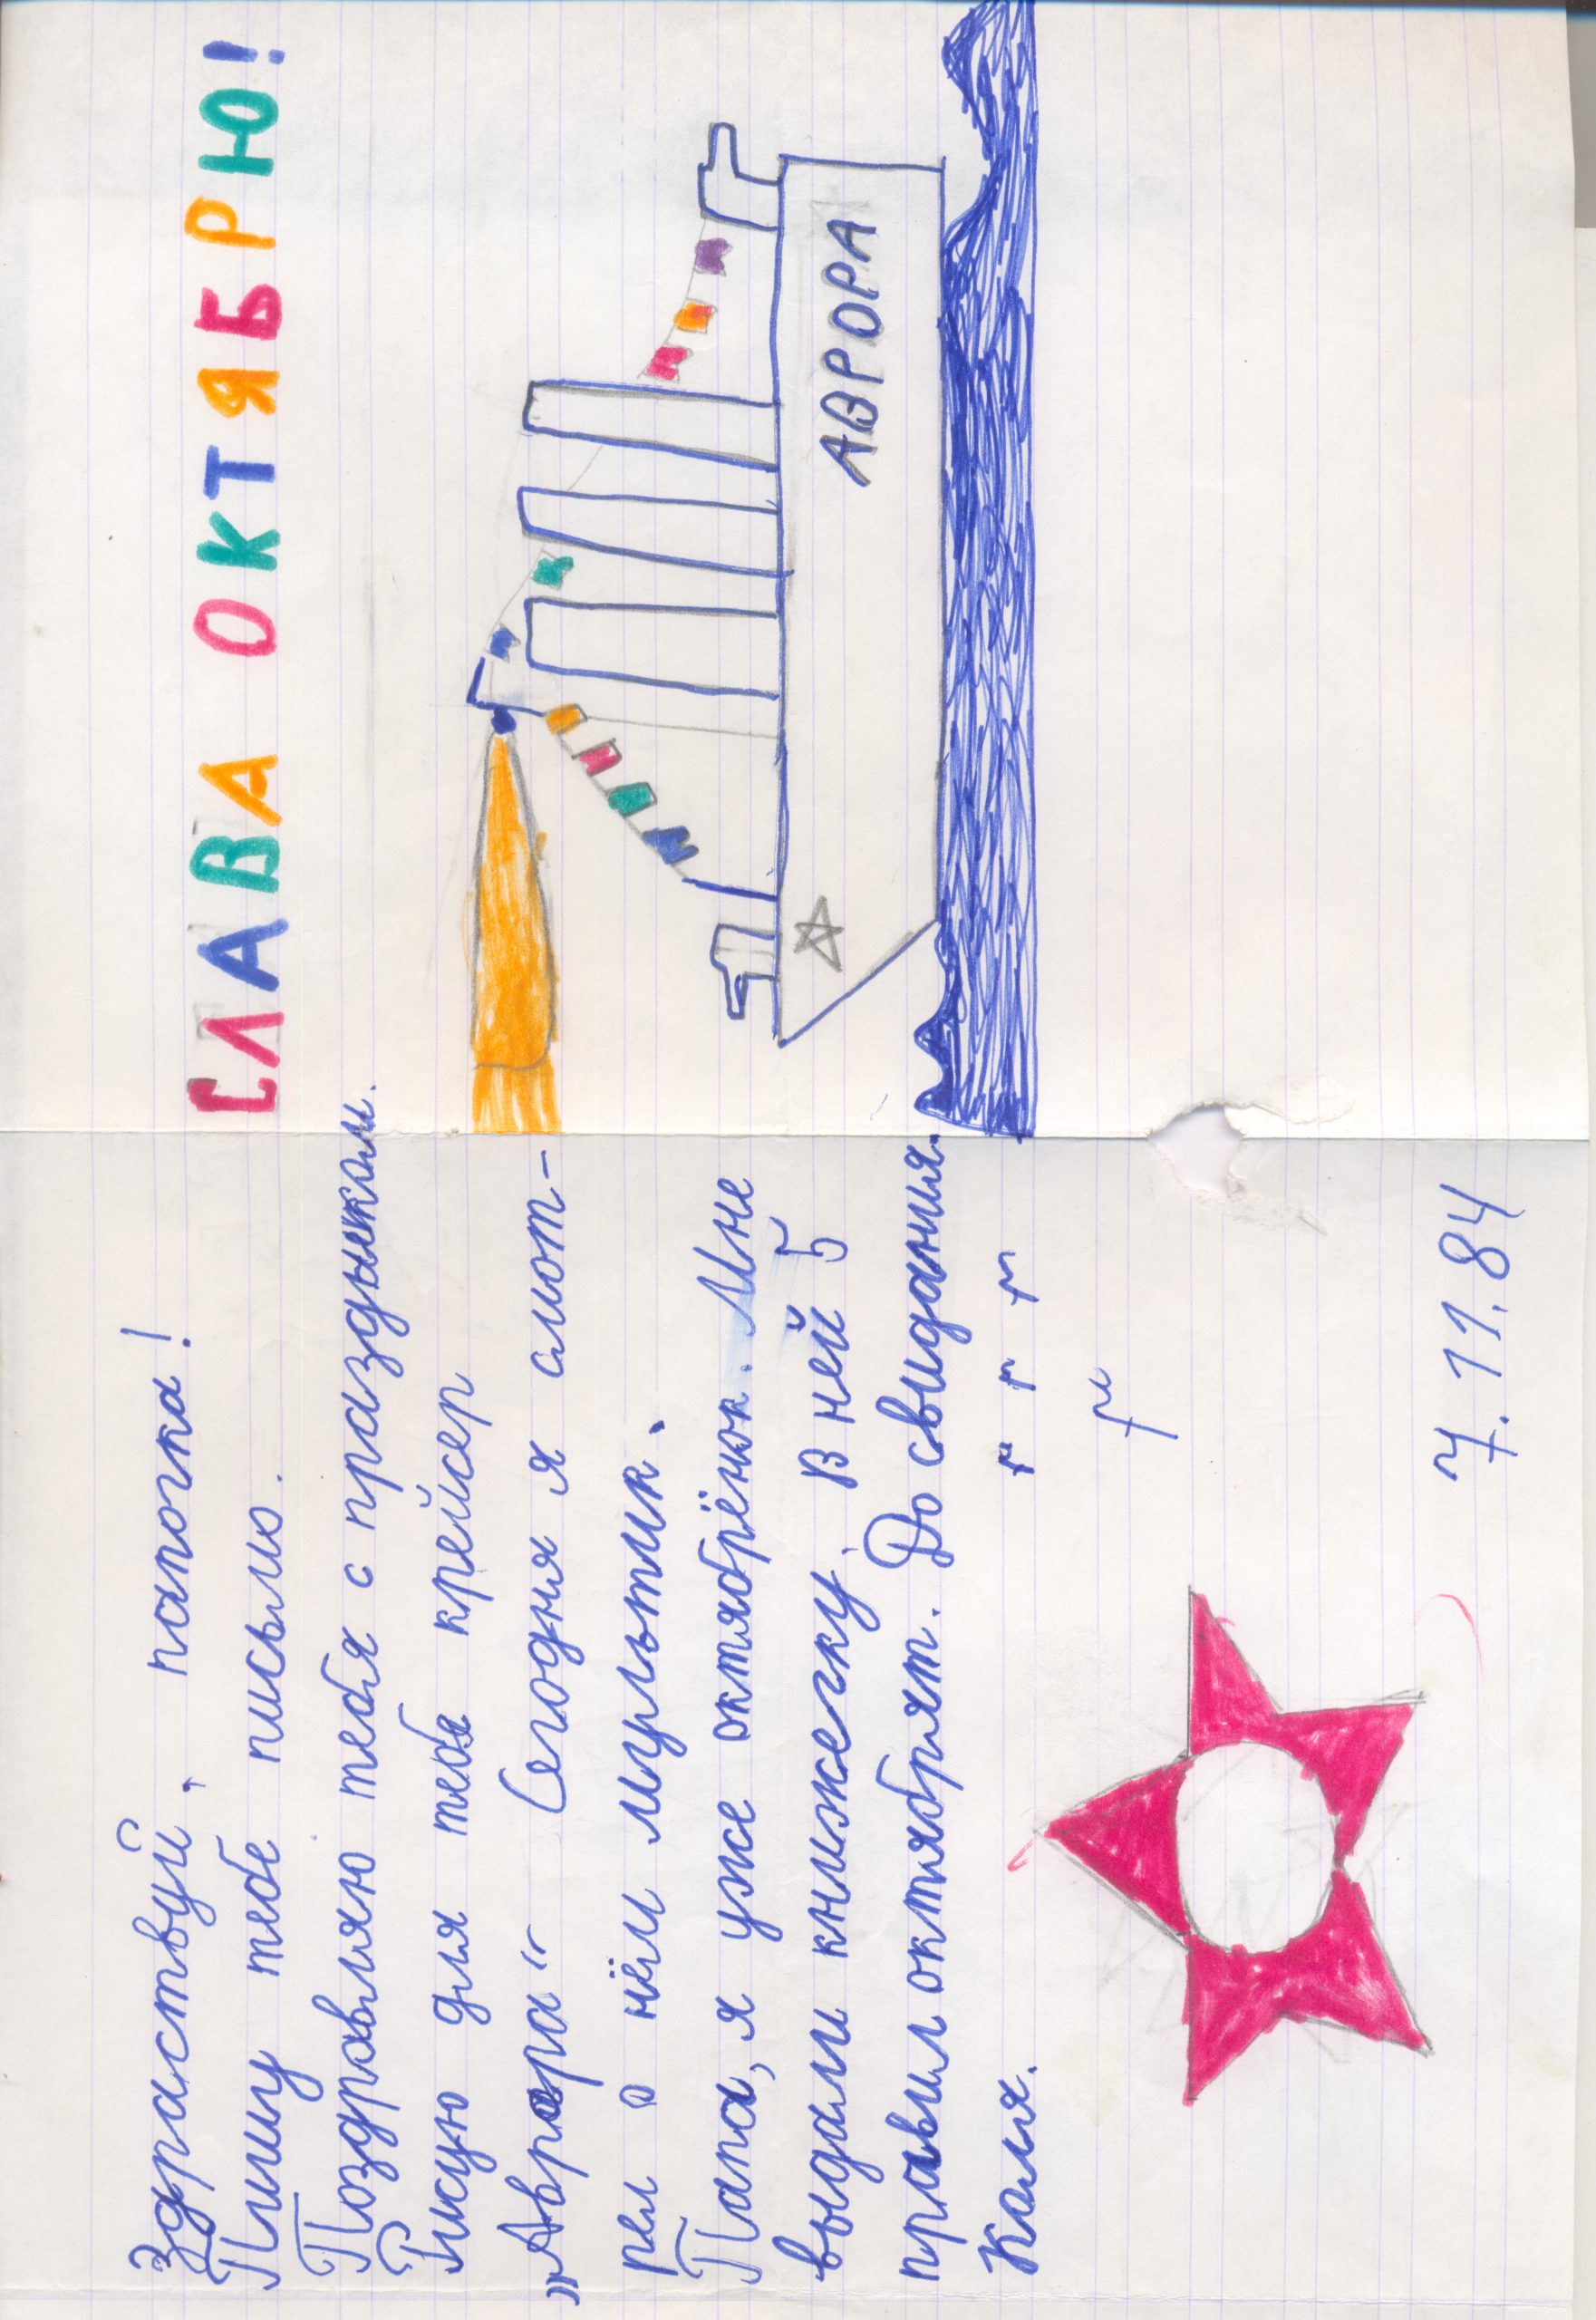 Здраствуй, папочка!
Пишу тебе письмо.
Поздравляю тебя с праздником.
Рисую для тебя крейсер
„Аврора" Сегодня я смот-
рел о нём мультик.
Папа, я уже октябрёнок. Мне
выдали книжечку. В ней 5
правил октябрят. До свидания.
Коля.
7.11.84
СЛАВА ОКТЯБРЮ!
АВРОРА